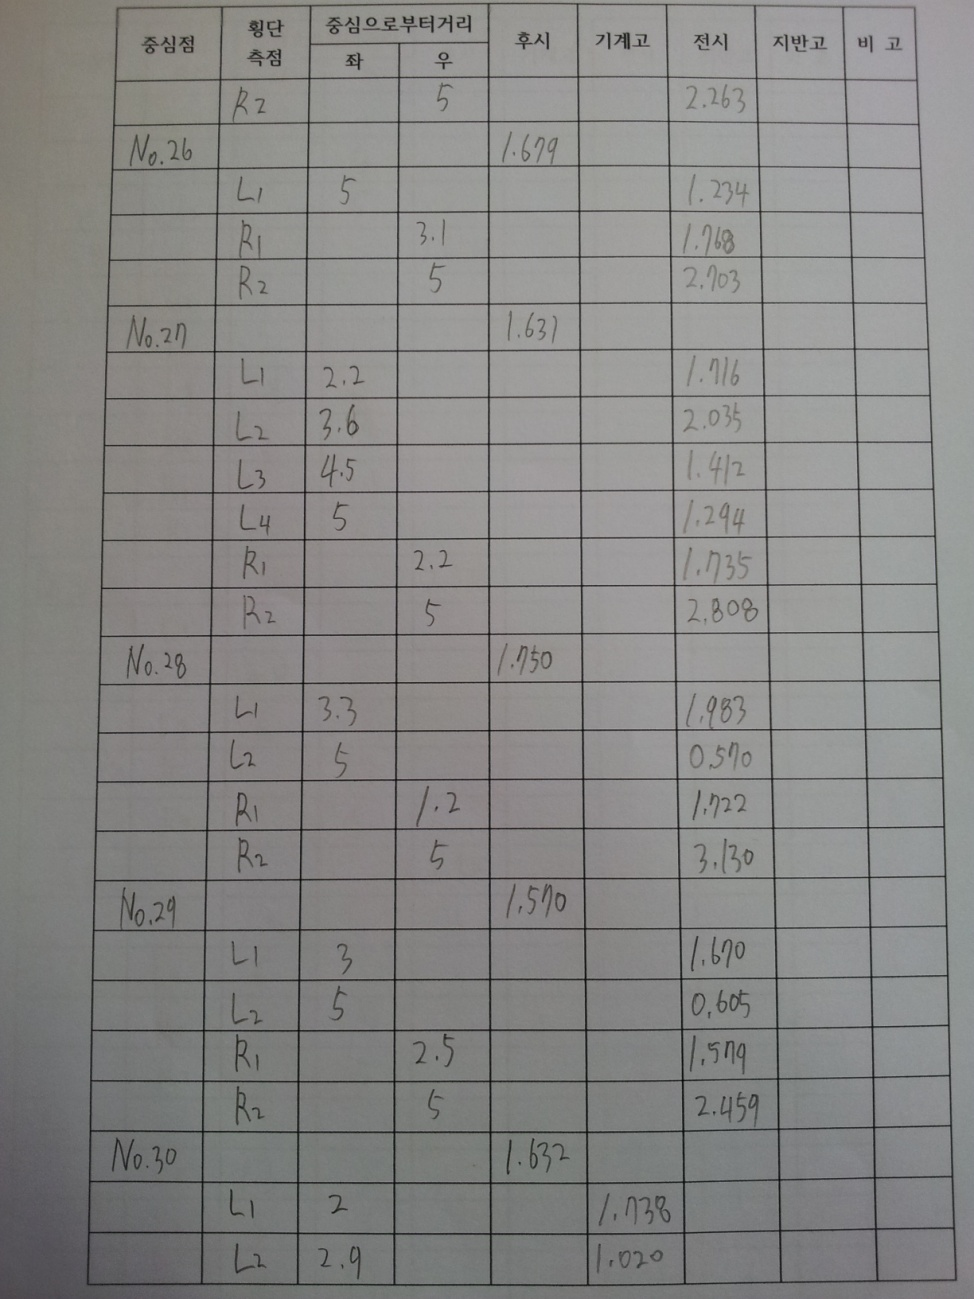 중심점 횡단 측점 중심으로부터거리 좌 우 후시 기계고 전시 지반고 비 고
R2 5 2.263
No.26 1.679
L1 5 1.234
R1 3.1 1.768
R2 5 2.703
No.27 1.631
L1 2.2 1.716
L2 3.6 2.035
L3 4.5 1.412
L4 5 1.294
R1 2.2 1.735
R2 5 2.808
No.28 1.750
L1 3.3 1.983
L2 5 0.570
R1 1.2 1.722
R2 5 3.130
No.29 1.570
L1 3 1.670
L2 5 0.605
R1 2.5 1.579
R2 5 2.459
No.30 1.632
L1 2 1.738
L2 2.9 1.020